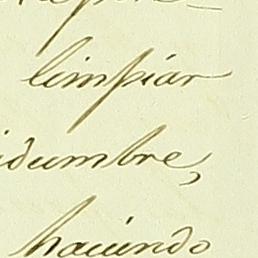 limpiar
idumbre,
haciendo